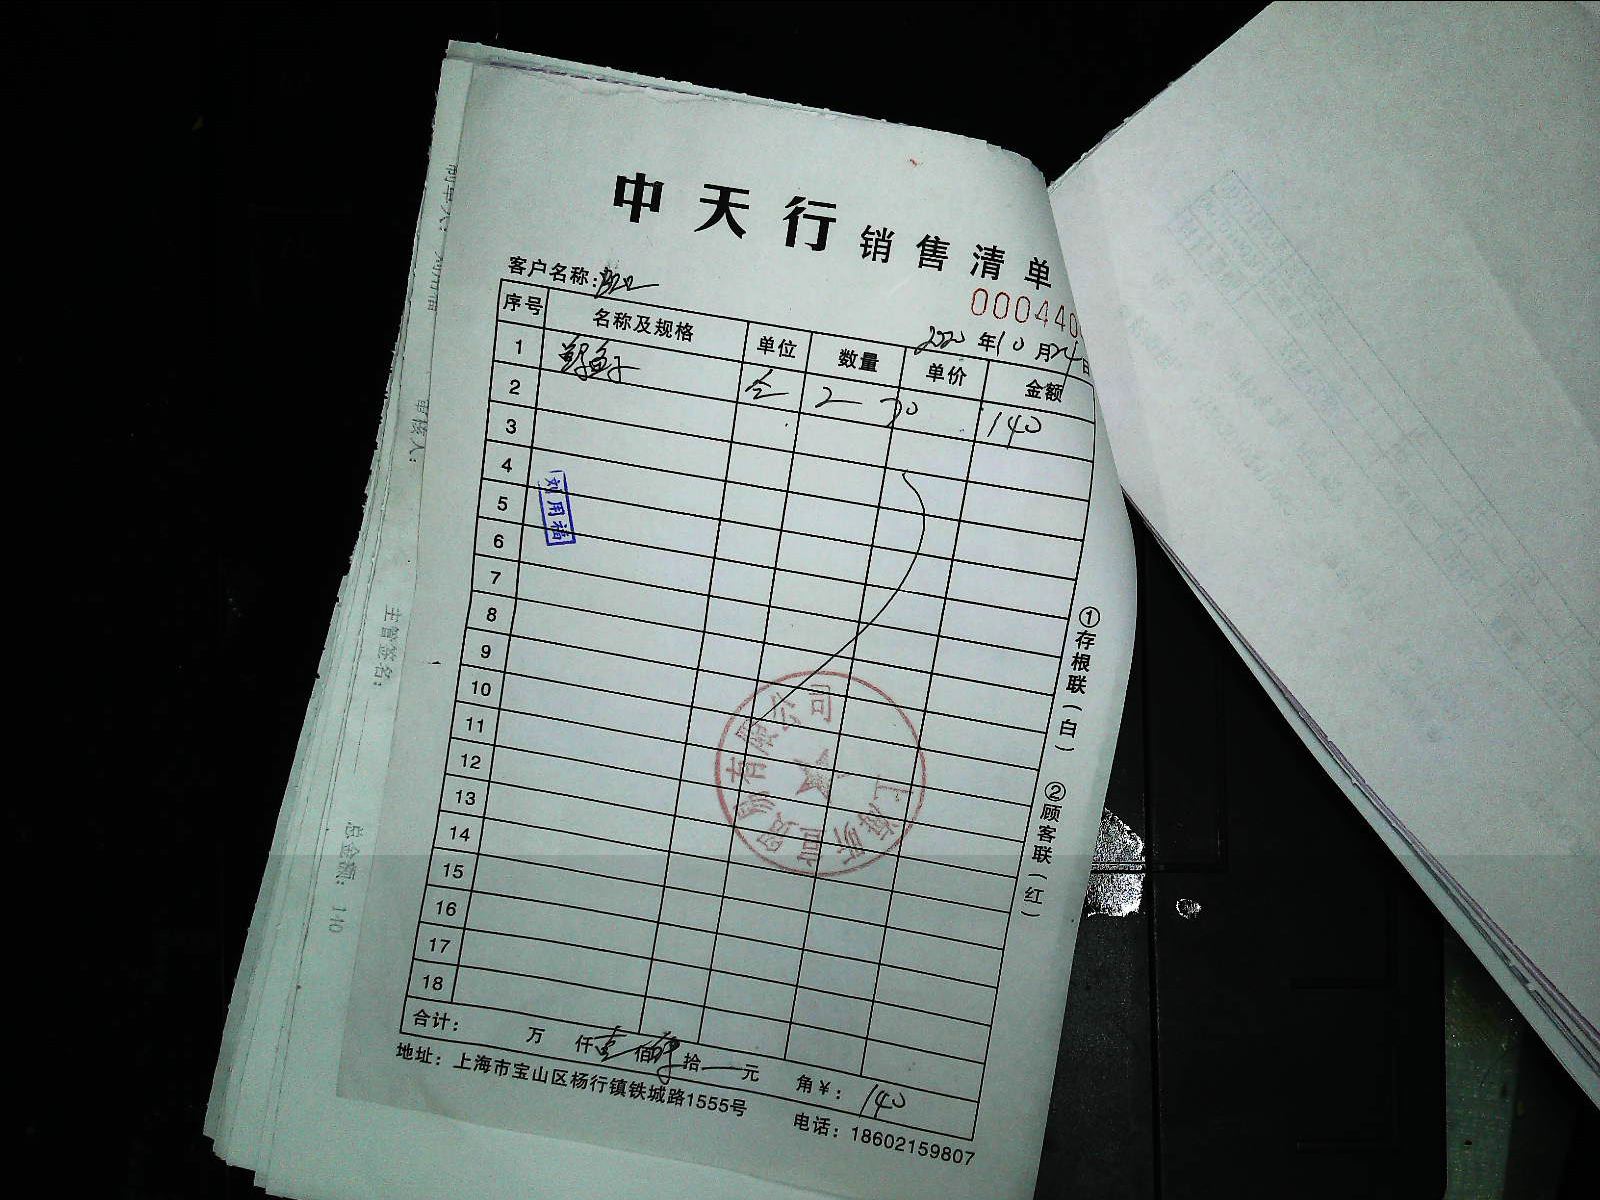 中天行 销售清单
客户名称:
00044
2020年10月24日
序号 名称及规格 单位 数量 单价 金额
1 鲟鱼子 仝 2 70 140
2
3
4
5
6
7
8
9
10
11
12
13
14
15
16
17
18
刘用福
上海昕 贸易有限公司
合计: 万 仟壹佰肆拾 元 角¥: 140
地址:上海市宝山区杨行镇铁城路1555号 电话:18602159807
①存根联(白) ②顾客联(红)
制单人: 刘用福
审核人:
主管签名:
总金额: 140